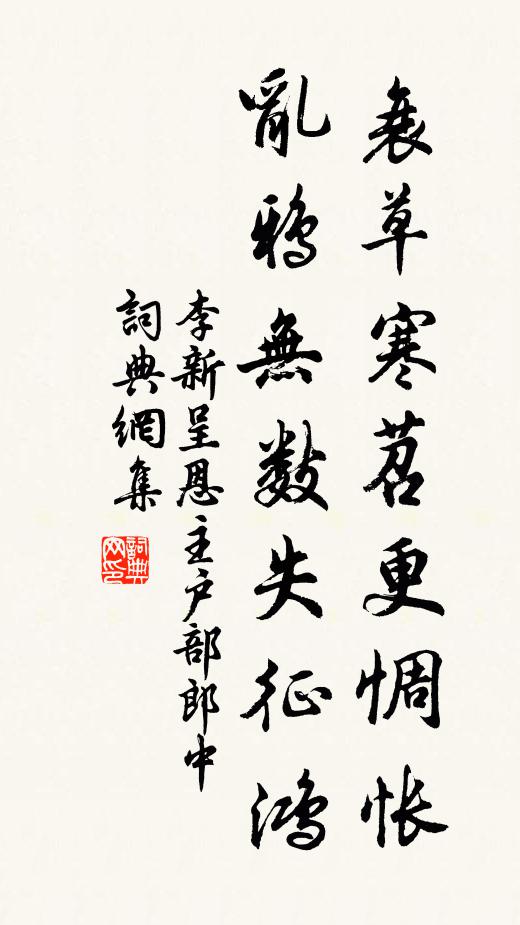 衰草寒苕更惆怅
亂鴉無數失征鴻
李新呈恩主户部郎中
詞典網集
詞典网印